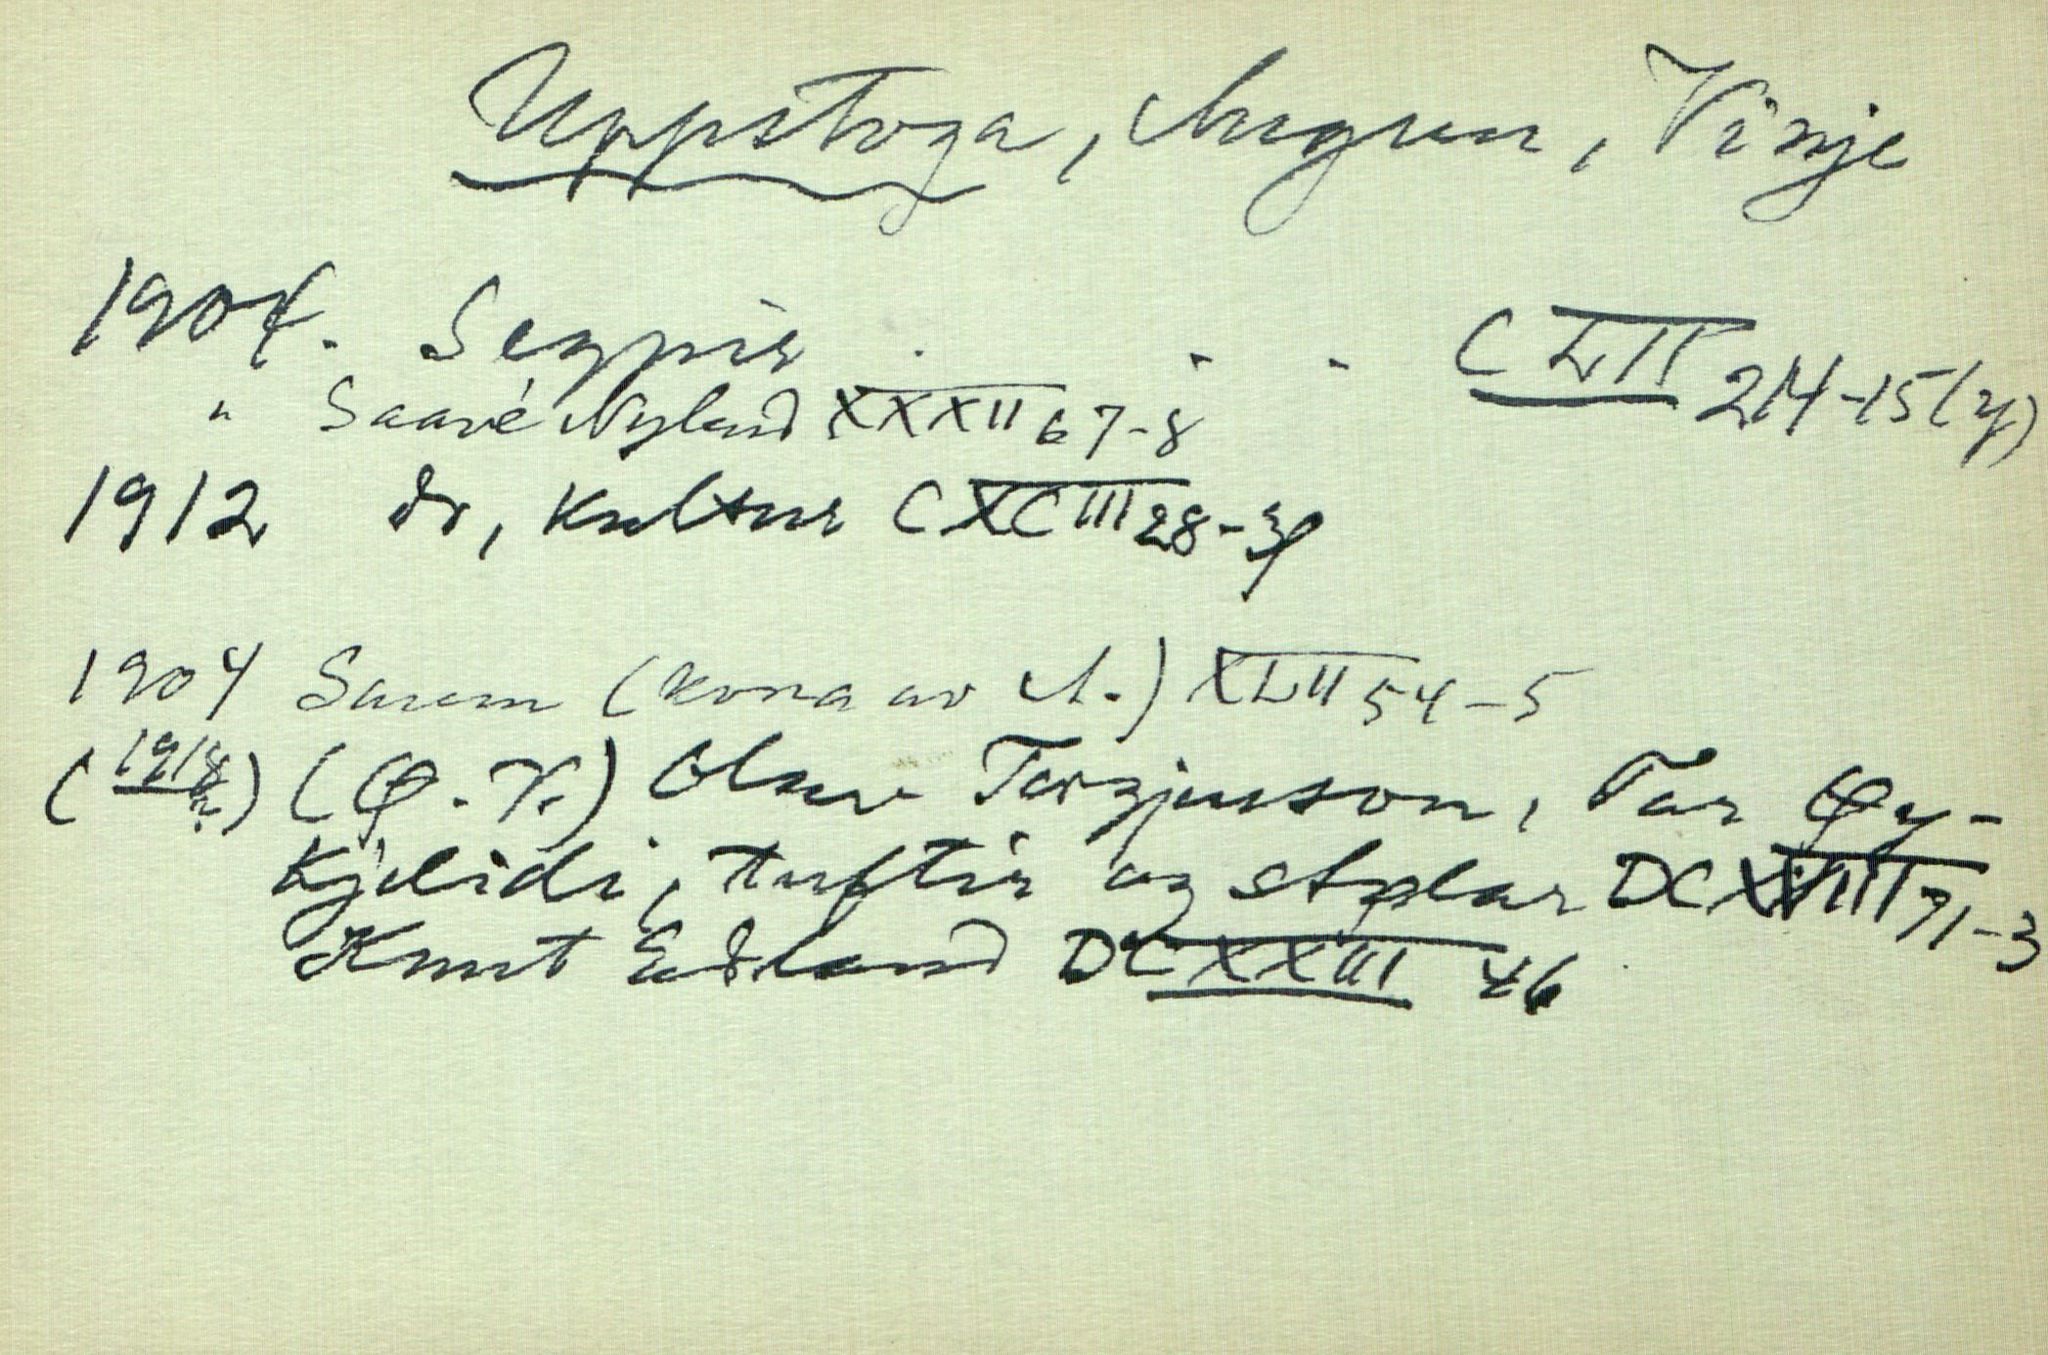 Uppstoga, Angrun, Vinje
1904. Segner . - - CLII 214-15(y)
" Saave Nyland XXXII 67-8
1912 do, Kultur CXCIII 28-31
1904 (kona av A.) XLII 54-5
(1918) (Ø.K.) Olav Torgjusson, Tor Øy-
kjelidi, tuftir og DCXVIII 71-3
Knut Edland DCXXIII 46